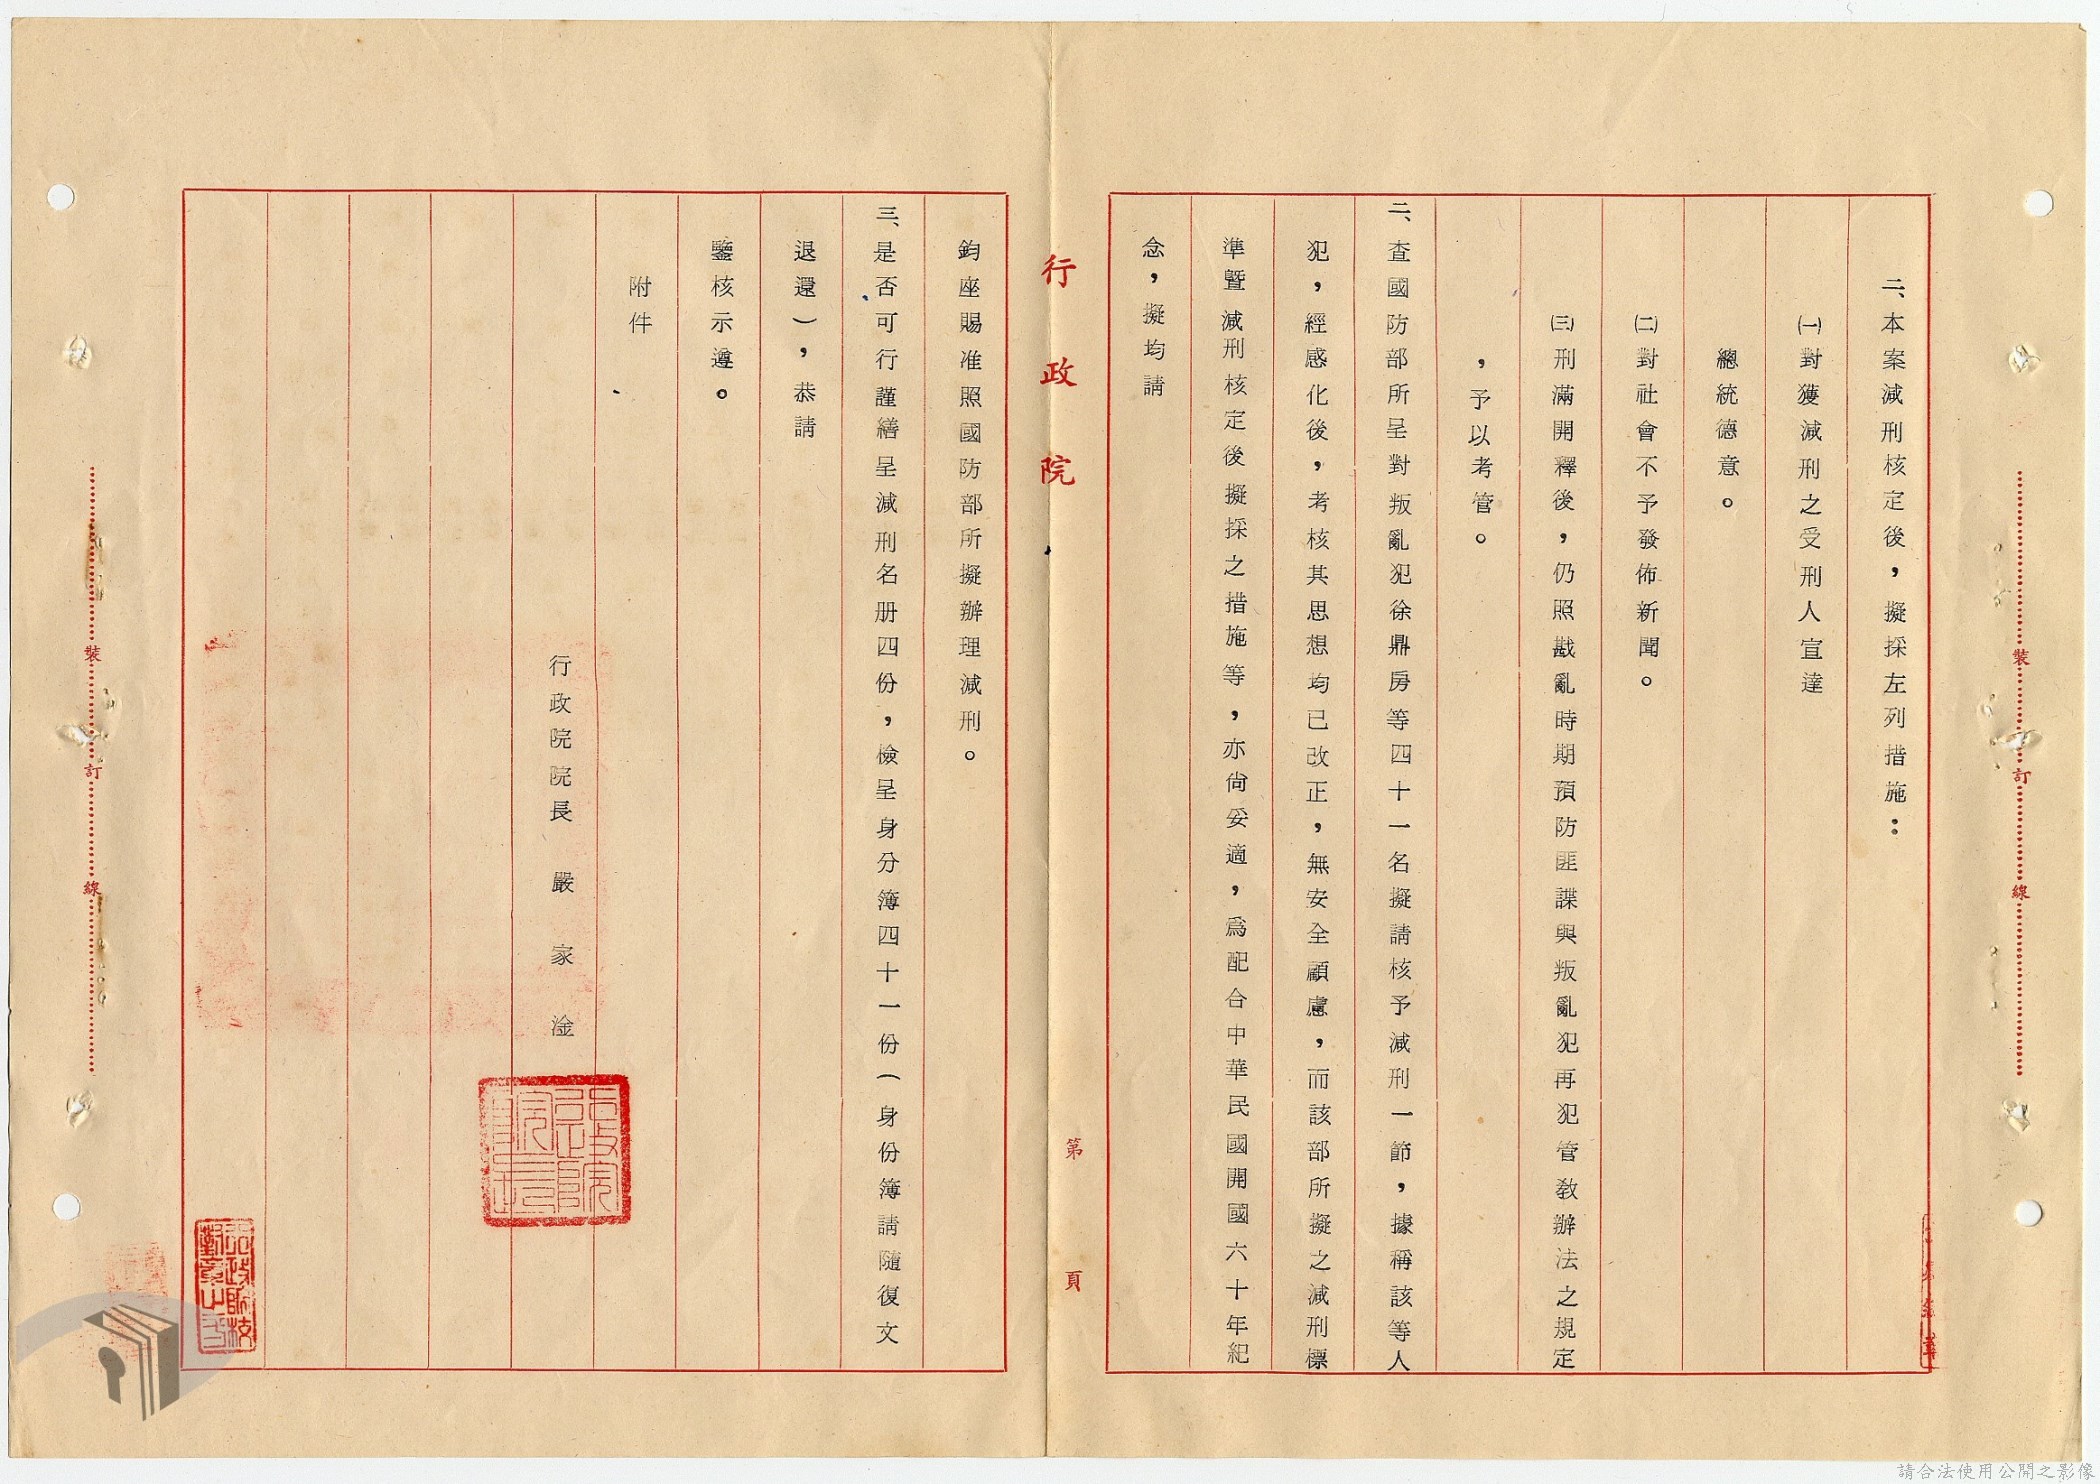 二、本案減刑核定後，擬採左列措施：
㈠對獲減刑之受刑人宣達
總統德意。
㈡對社會不予發佈新聞。
㈢刑滿開釋後，仍照戡亂時期預防匪諜與叛亂犯再犯管教辦法之規定
，予以考管。
二、查國防部所呈對叛亂犯徐鼎房等四十一名擬請核予減刑一節，據稱該等人
犯，經感化後，考核其思想均已改正，無安全顧慮，而該部所擬之減刑標
準暨減刑核定後擬採之措施等，亦尚妥適，為配合中華民國開國六十年紀
念，擬均請
行政院
第 頁
鈞座賜准照國防部所擬辦理減刑。
三、是否可行謹繕呈減刑名册四份，檢呈身分簿四十一份（身份簿請隨復文
退還），恭請
鑒核示遵。
附件
行政院院長 嚴 家 淦
行政院院長
行政院校
對章
裝 訂 線
裝 訂 線
請合法使用公開之影像